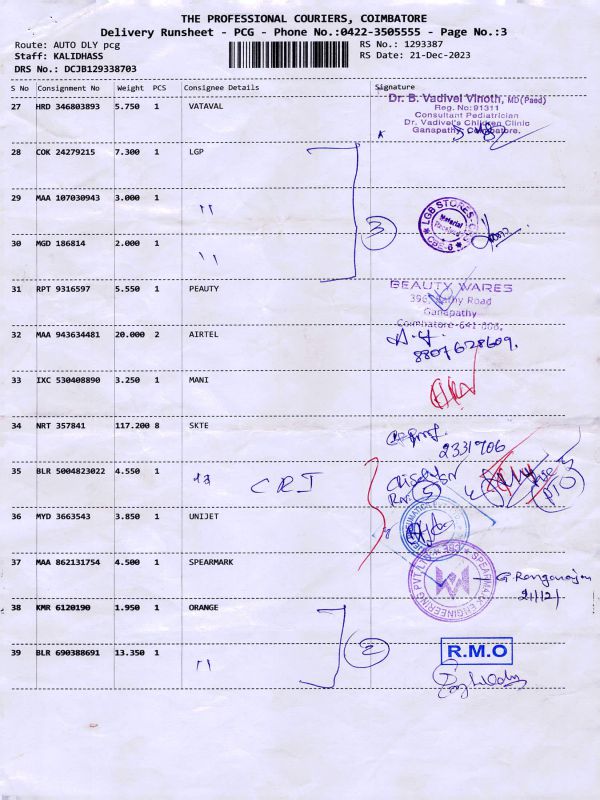 THE PROFESSIONAL COURIERS, COIMBATORE
Delivery Runsheet - PCG - Phone No.:0422-3505555 - Page No.:3
Route: AUTO DLY pcg
RS No.: 1293387
Staff: KALIDHASS
RS Date: 21-Dec-2023
DRS No.: DCJB129338703
S No Consignment No Weight PCS Consignee Details Signature
27 HRD 346803893 5.750 1 VATAVAL
Dr. B. Vadivel Vinoth, MD (Paed)
Reg. No: 91311
Consultant Pediatrician
Dr. Vadivel's Children Clinic
Ganapathy, Coimbatore.
28 COK 24279215 7.300 1 LGP
29 MAA 107030943 3.000 1 "
LGB STORES
Material
CBE-6
3
30 MGD 186814 2.000 1 "
31 RPT 9316597 5.550 1 PEAUTY
BEAUTY WARES
396, Sathy Road
Ganapathy
Coimbatore-641 006.
32 MAA 943634481 20.000 2 AIRTEL
8807628609.
33 IXC 530408890 3.250 1 MANI
34 NRT 357841 117.200 8 SKTE
2331706
35 BLR 5004823022 4.550 1 CRI
5
36 MYD 3663543 3.850 1 UNIJET
37 MAA 862131754 4.500 1 SPEARMARK
SPEARMAX ENGINEERING PVT. LTD. CBE
G. Renganajan
21/12/
38 KMR 6120190 1.950 1 ORANGE
2
39 BLR 690388691 13.350 1 "
R.M.O